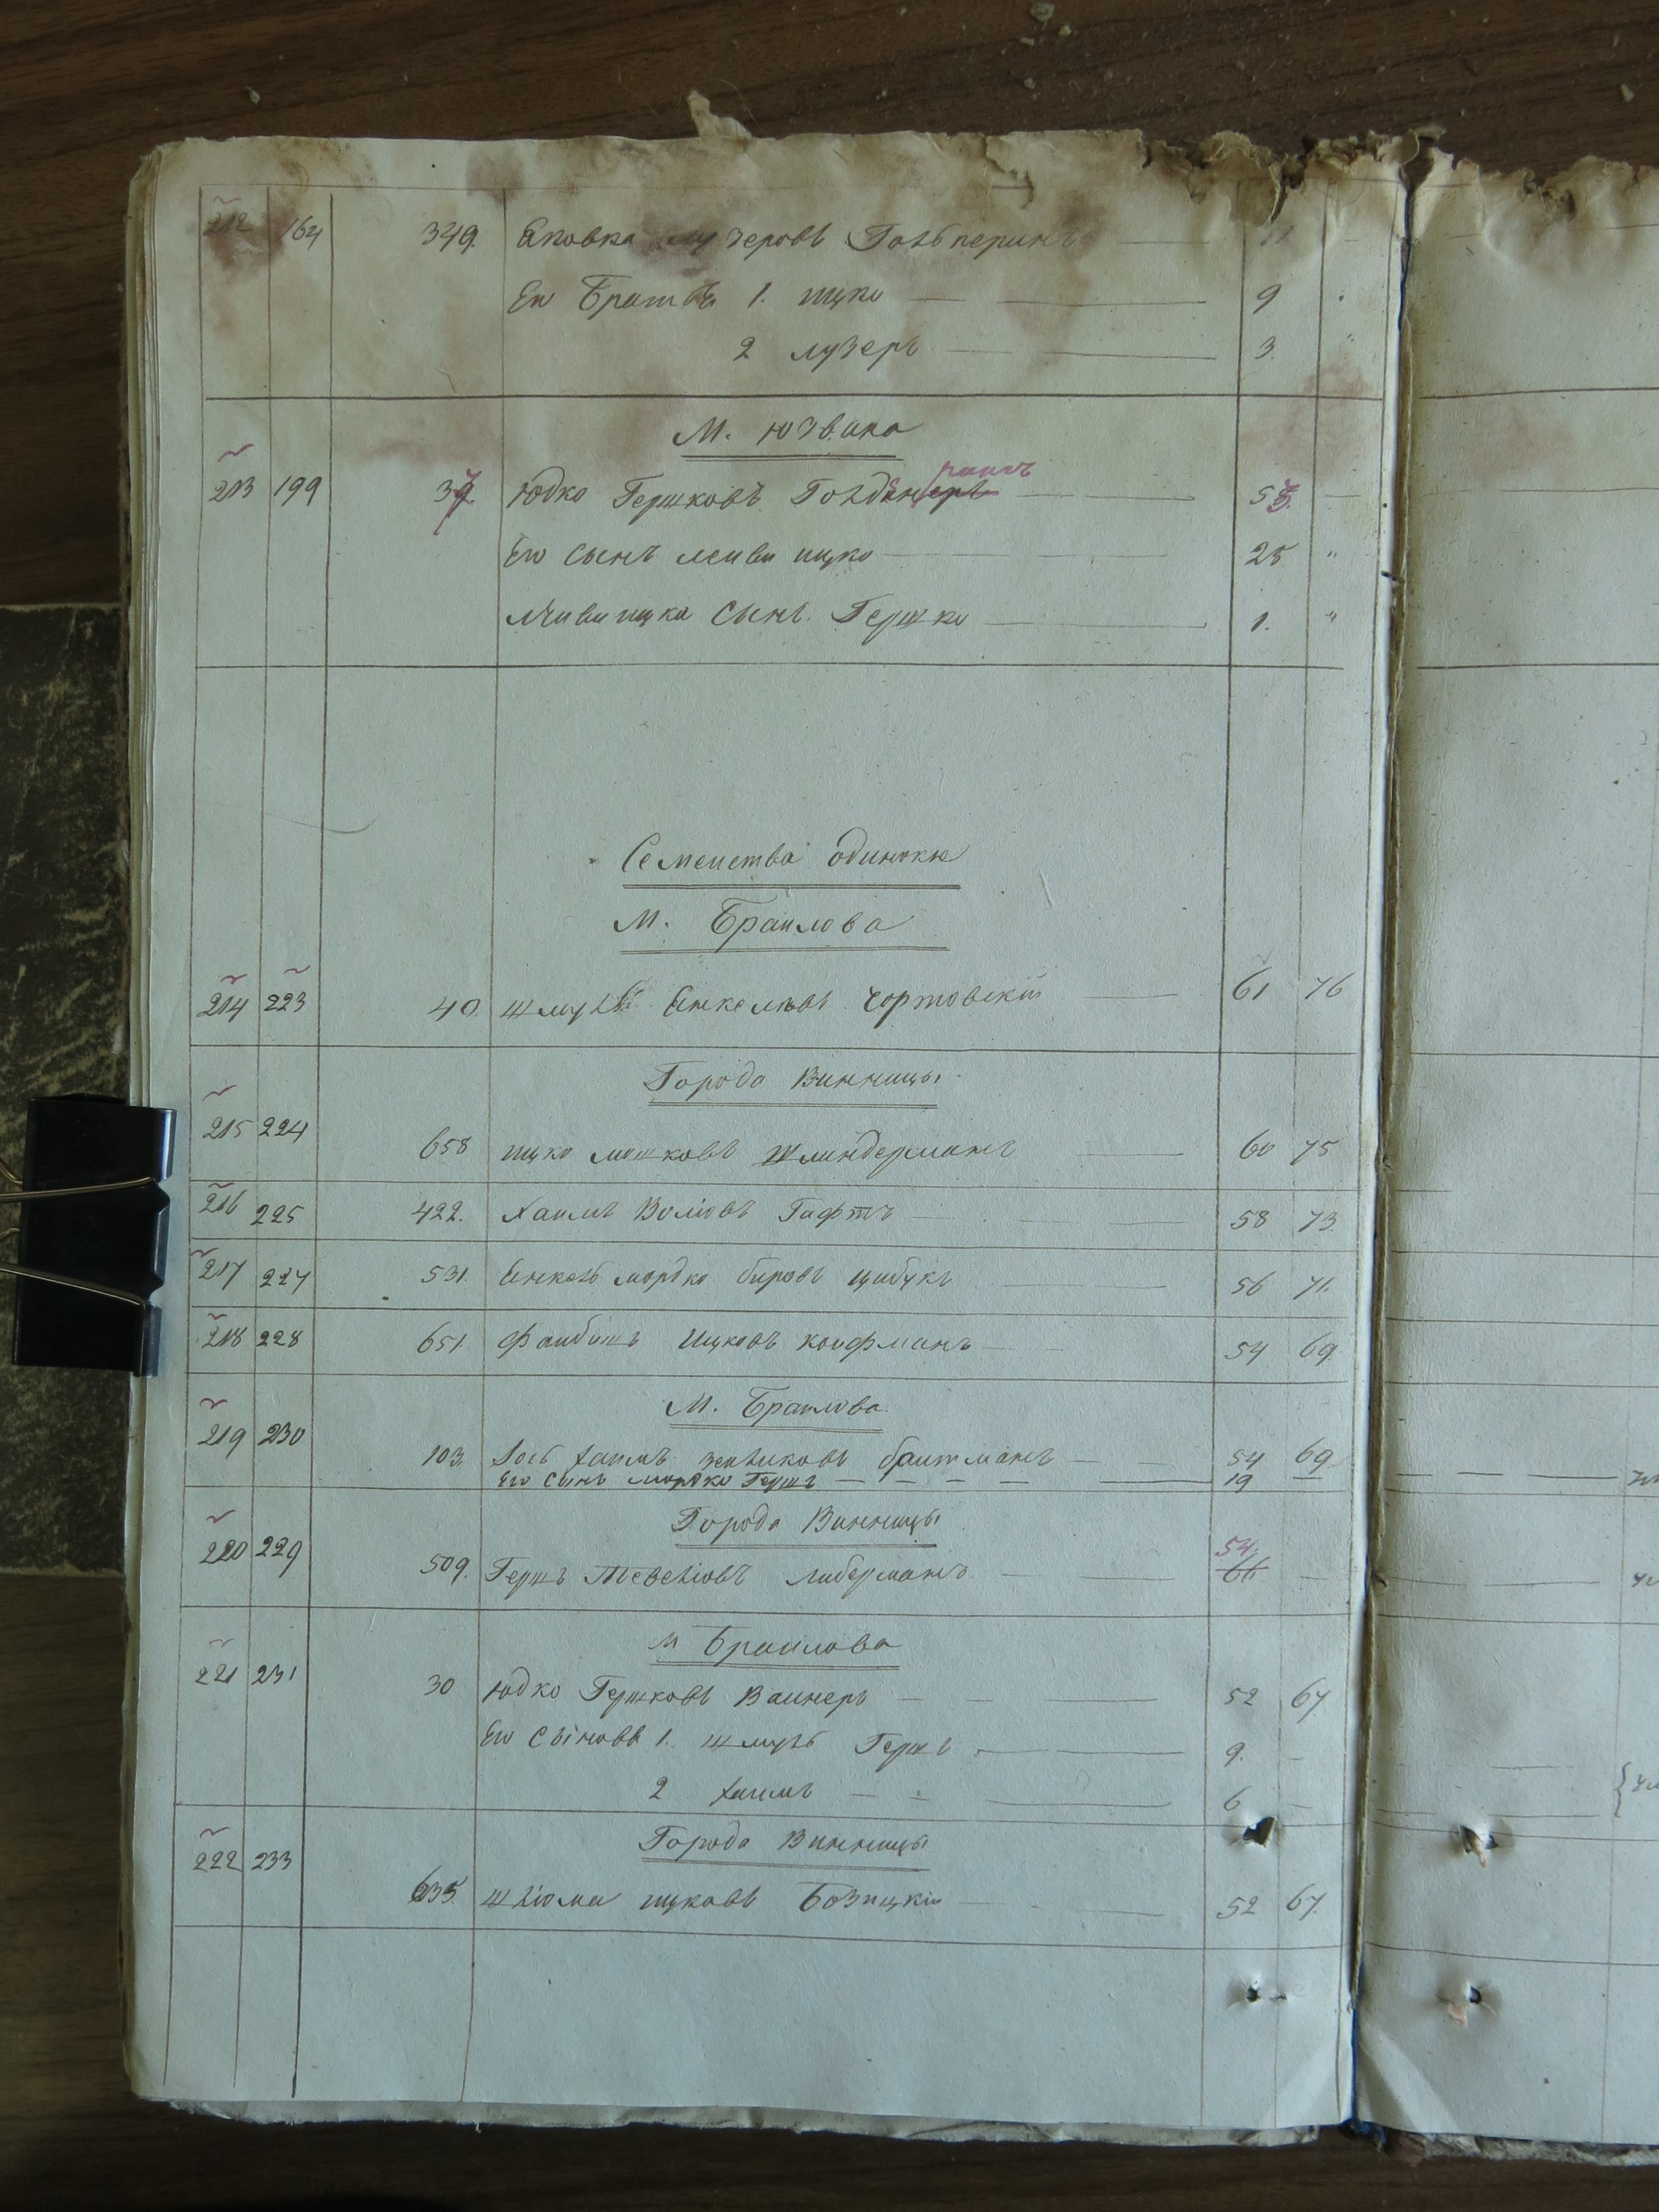 212 164 349. Яновка Лузеровъ Гольперинъ 11
Его Братья 1. ицко 9
2 лузеръ 3.
М. Юзвина
213 199 37. Юдко Гершковъ Гольдинеръ 53.
Его Сынъ лейви ицко 25 "
Лейви ицка Сынъ. Гершко 1. "
Семейства одинокіе
М. Браилова
214 223 40. шмуль Янкелевъ Чортовскій 61 76
Города Винницы.
215 224 658 ицко мошковъ Шлиндерманъ 60 75
216 225 422. Хаимъ Волковъ Гафтъ 58 73.
217 227 531. Янкель мордко беровъ цибукъ 56 71.
218 228 651. Файбишъ Ицковъ койфманъ 54 69.
М. Браилова.
219 230 103. Іось Хаимъ зейликовъ брайтманъ 54 69
Его Сынъ мордко Гершъ 19
Города Винницы
54.
220 229 509. Гершъ Тевелiовъ либерманъ
М Браилова
221 231 30 Юдко Гершковъ Вайнеръ 52 67.
Его Сыновя 1. шмуль Гершъ 9.
2 Хаимъ 6
Города Винницы
222 233 635. шліома ицковъ Бозицкій 52 67.